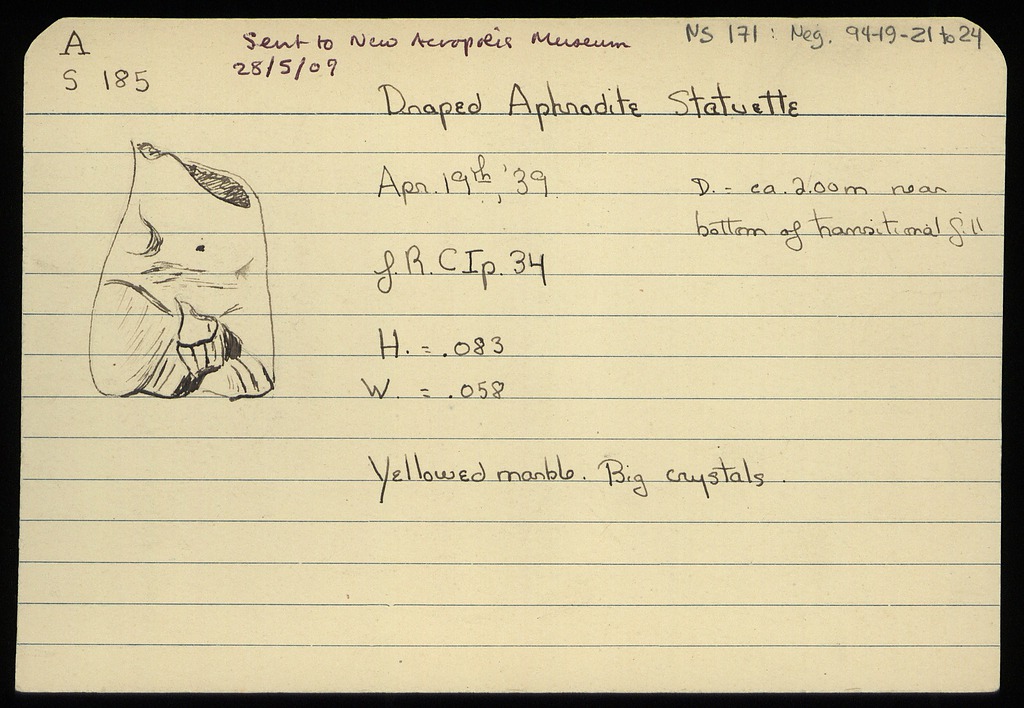 A
S 185
Sent to New Acropolis Museum
28/5/09
NS 171 : Neg. 94-19-21 to 24
Draped Aphrodite Statuette
Apr. 19th, '39
D. = ca. 2.00m near
bottom of transitional fill
f. R. C I p. 34
H. = .083
W. = .058
Yellowed marble. Big crystals.